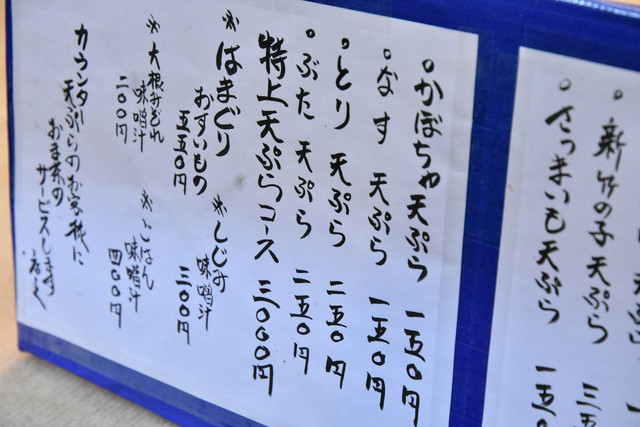 ○新竹の子天ぷら 三五
○さつまいも天ぷら 一五〇
○かぼちゃ天ぷら 一五〇円
○なす 天ぷら 一五〇円
○とり 天ぷら 二五〇円
○ぶた 天ぷら 二五〇円
特上天ぷらコース 三〇〇〇円
※はまぐり
おすいもの
五五〇円
※しじみ
味噌汁
三〇〇円
※大根みぞれ
味噌汁
二〇〇円
※ごはん
味噌汁
四〇〇円
カウンター
天ぷらのお客様に
お吉茶の
サービスします